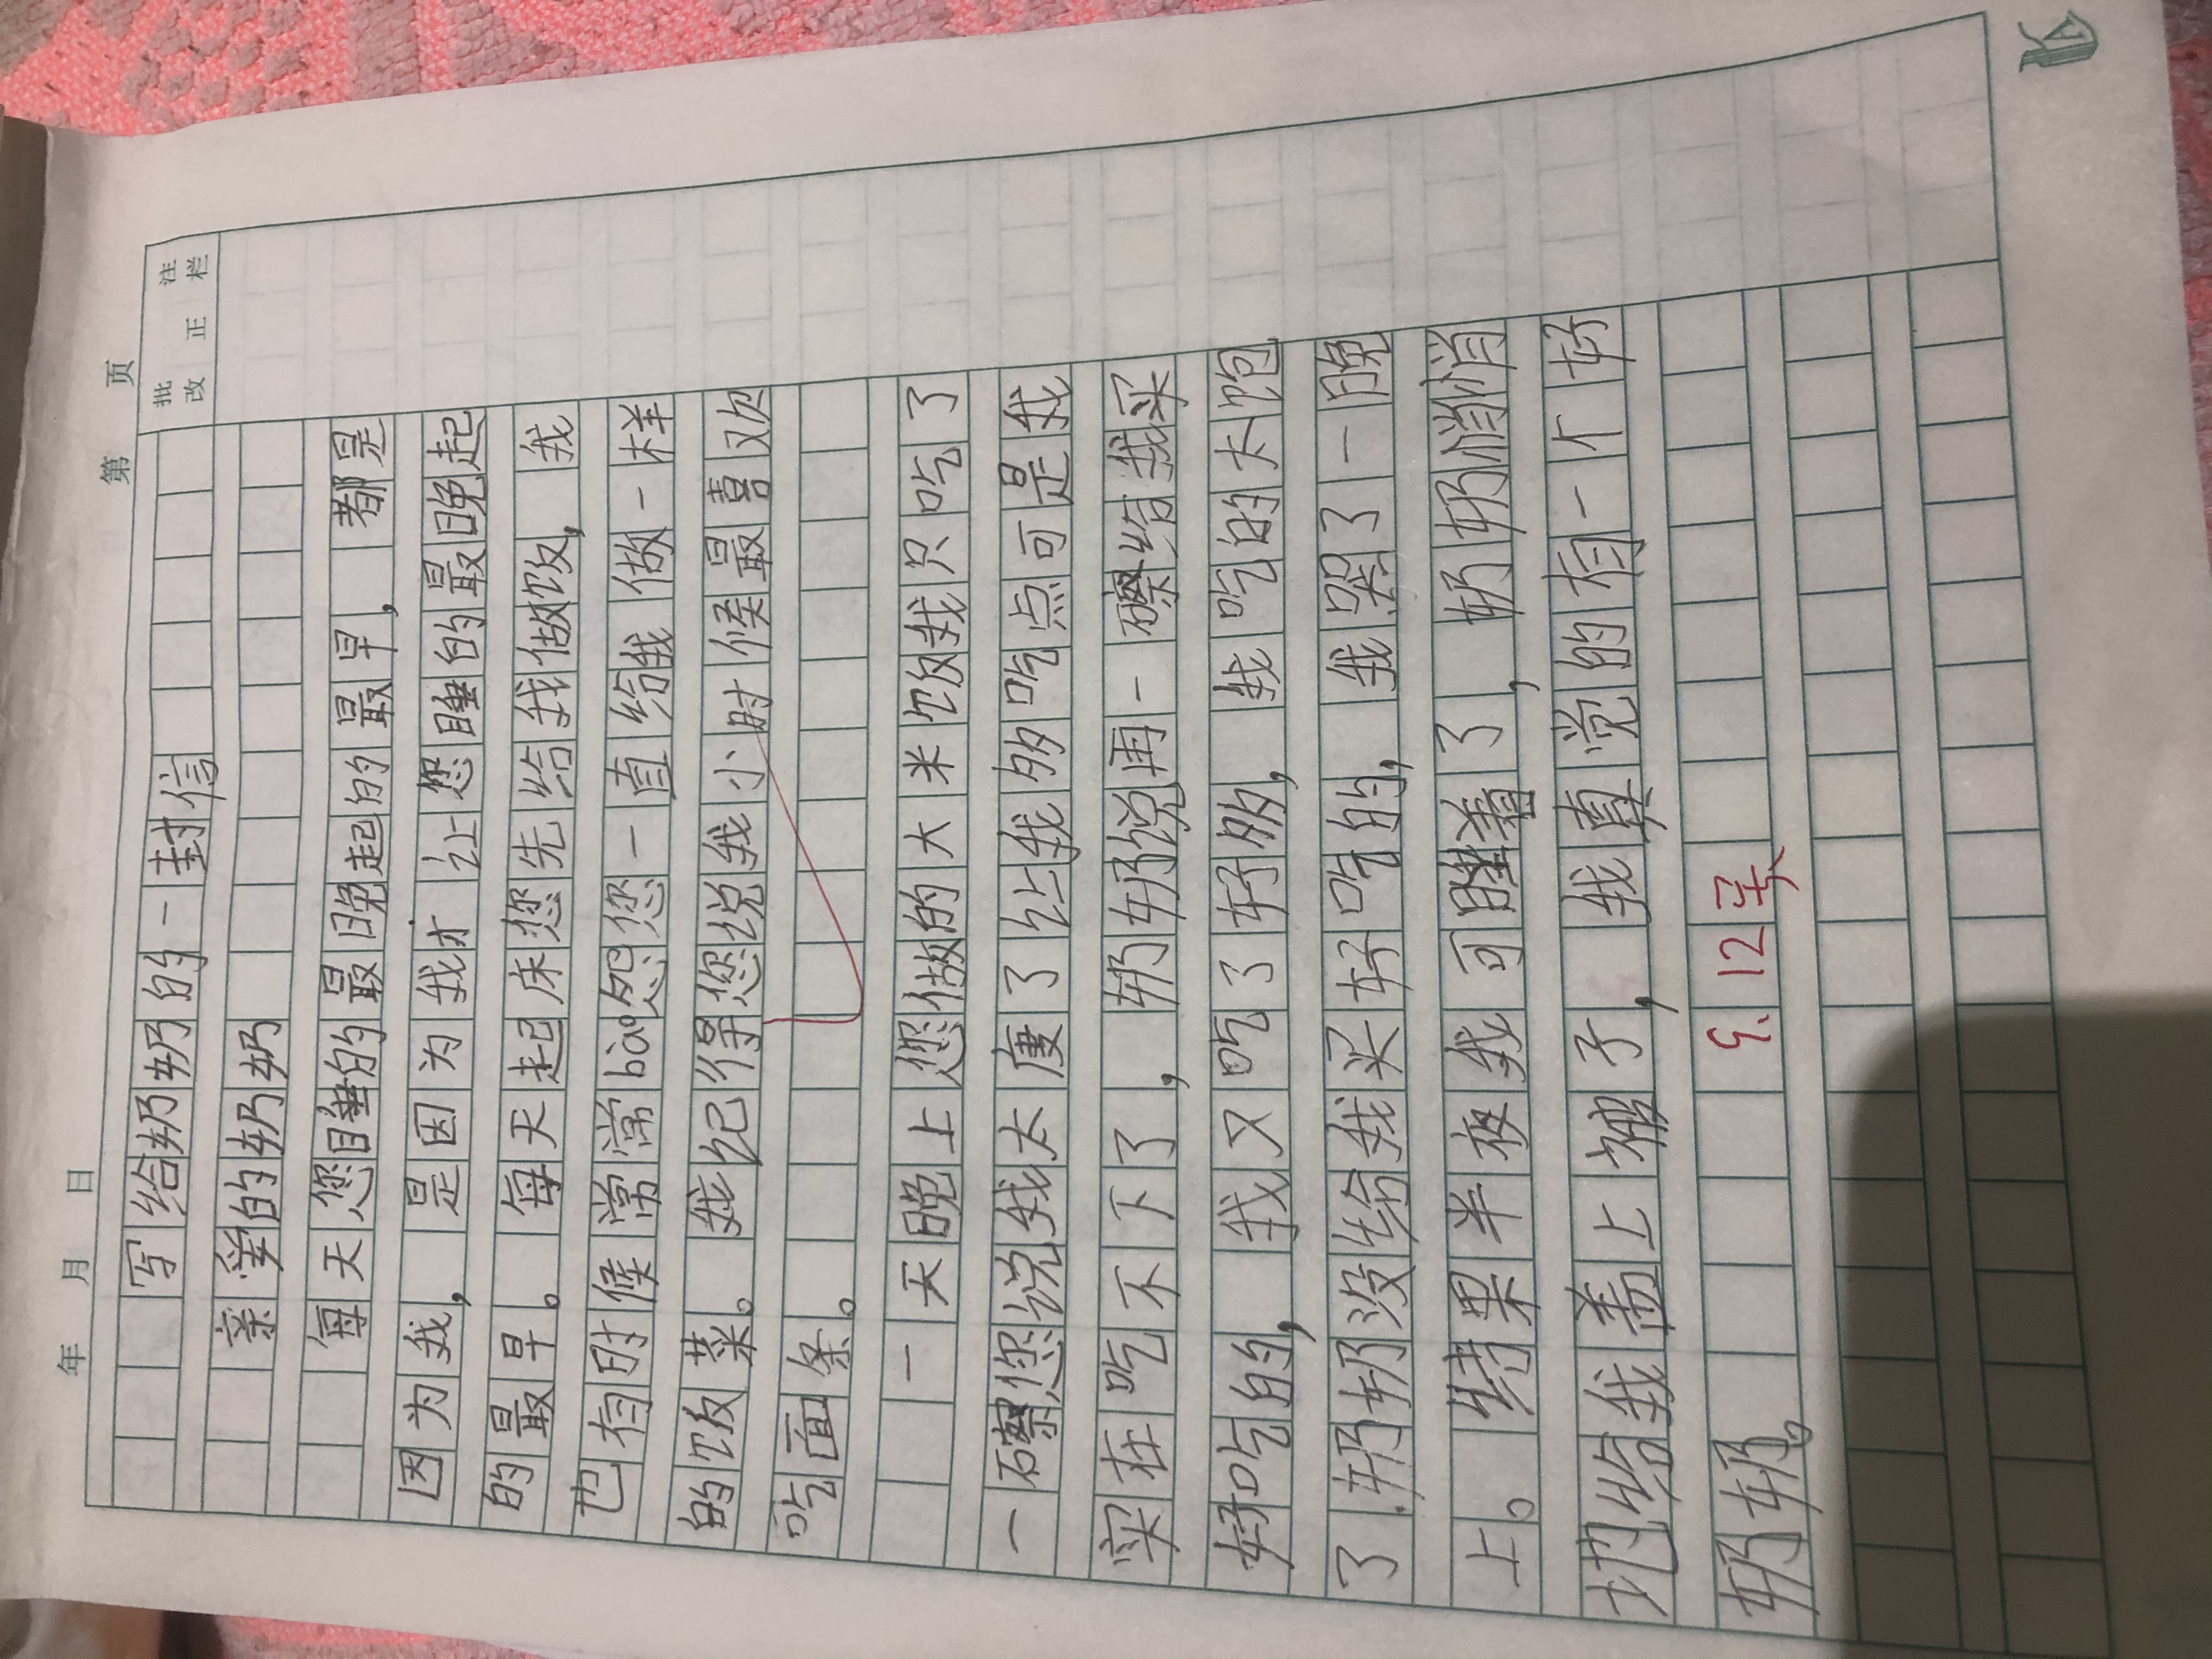 年 月 日 第 页
批改 正 注栏
写给奶奶的一封信
亲爱的奶奶
每天您睡的最晚起的最早，都是
因为我，是因为我才让您睡的最晚起
的最早。每天起床您先给我做饭，我
也有时候常常bào怨您一直给我做一样
的饭菜。我纪得您说我小时候最喜欢
吃面条。
一天晚上您做的大米饭我只吃了
一嚓您说我太廋了让我多吃点可是我
实在吃不下了，奶奶说再一嚓给我买
好吃的，我又吃了好多，我吃的太饱
了奶奶没给我买好吃的，我哭了一晚
上。结果半夜我可睡着了，奶奶悄悄
地给我盖上被子，我真觉的有一个好
奶奶。
9.12买